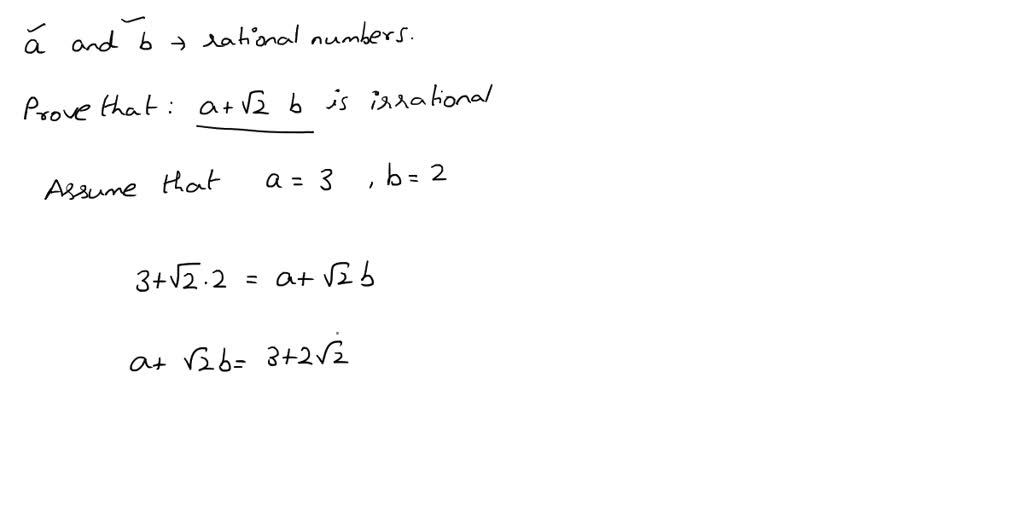 a and b → rational numbers.
Prove that: a+√2 b is irrational
Assume that a = 3 , b = 2
3+√2.2 = a+ √2 b
a+ √2 b= 3+2√2